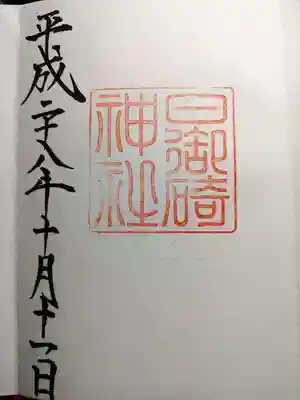 日御碕
神社
平成二十八年十月十一日